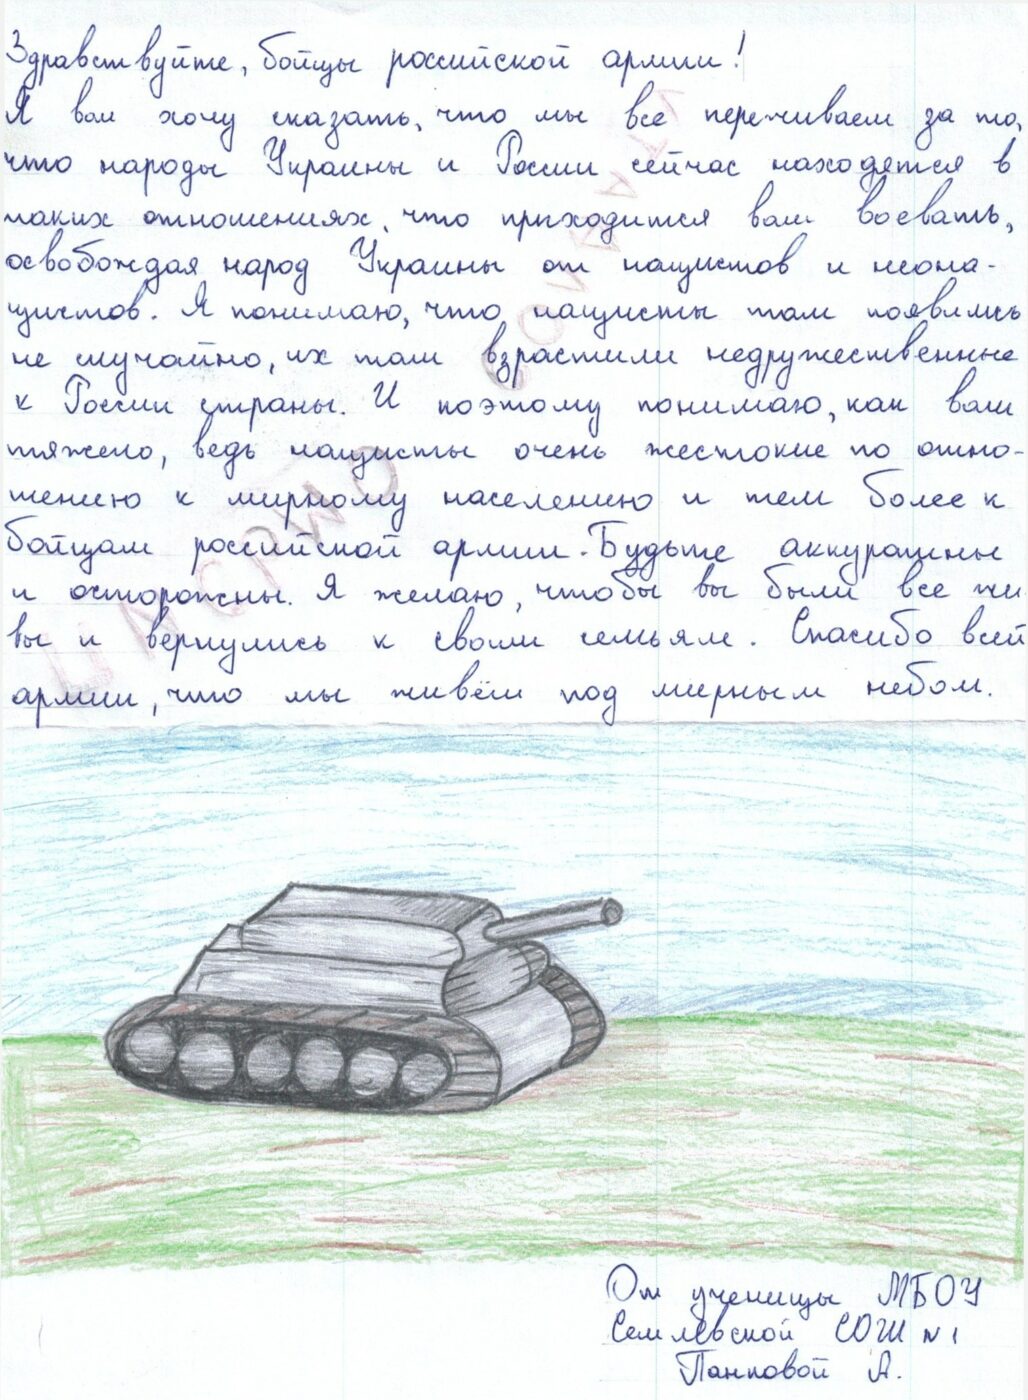 Здравствуйте, бойцы российской армии!
Я вам хочу сказать, что мы все переживаем за то,
что народы Украины и России сейчас находятся в
таких отношениях, что приходится вам воевать,
освобождая народ Украины от нацистов и неона-
цистов. Я понимаю, что нацисты там появились
не случайно, их там взрастили недружественные
к России страны. И поэтому понимаю, как вам
тяжело, ведь нацисты очень жестокие по отно-
шению к мирному населению и тем более к
бойцам российской армии. Будьте аккуратны
и осторожны. Я желаю, чтобы вы были все жи
вы и вернулись к своим семьям. Спасибо всей
армии, что мы живём под мирным небом.
От ученицы МБОУ
Семлевской СОШ №1
Панковой А.